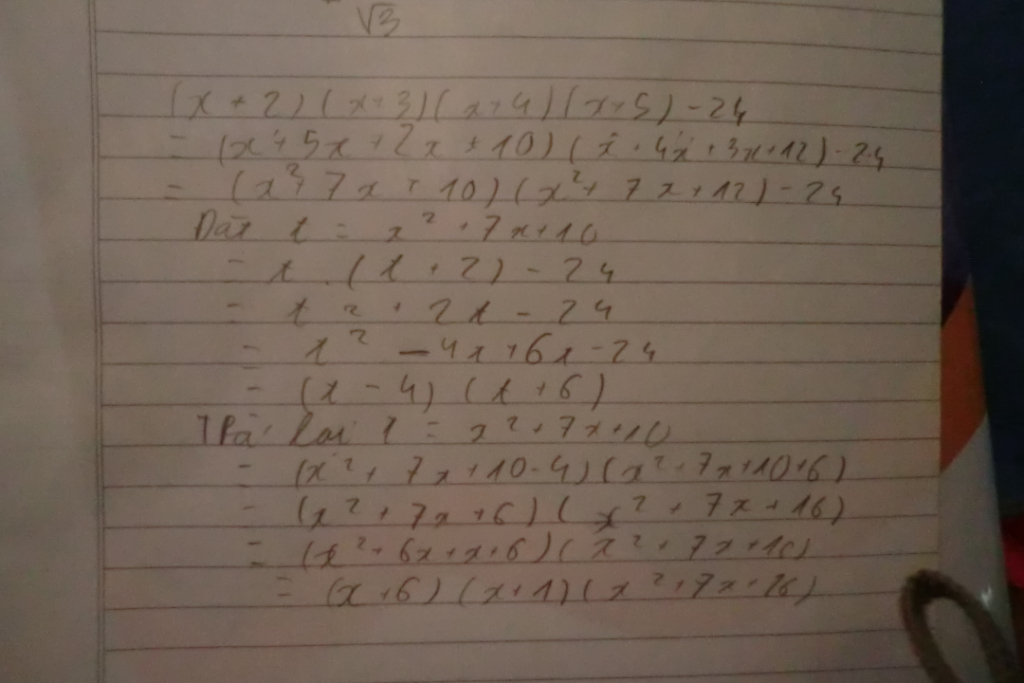 √3
(x + 2) (x+3) (x+4) (x+5) - 24
= (x²+5x+2x+10) (x²+4x+3x+12) - 24
= (x²+7x+10) (x²+7x+12) - 24
Đặt t = x²+7x+10
= t . (t+2) - 24
= t² + 2t - 24
= t² - 4t+6t-24
= (t-4) (t+6)
Trả lại t = x²+7x+10
= (x²+7x+10-4) (x²+7x+10+6)
= (x²+7x+6) (x²+7x+16)
= (x²+6x+x+6) (x²+7x+16)
= (x+6) (x+1) (x²+7x+16)